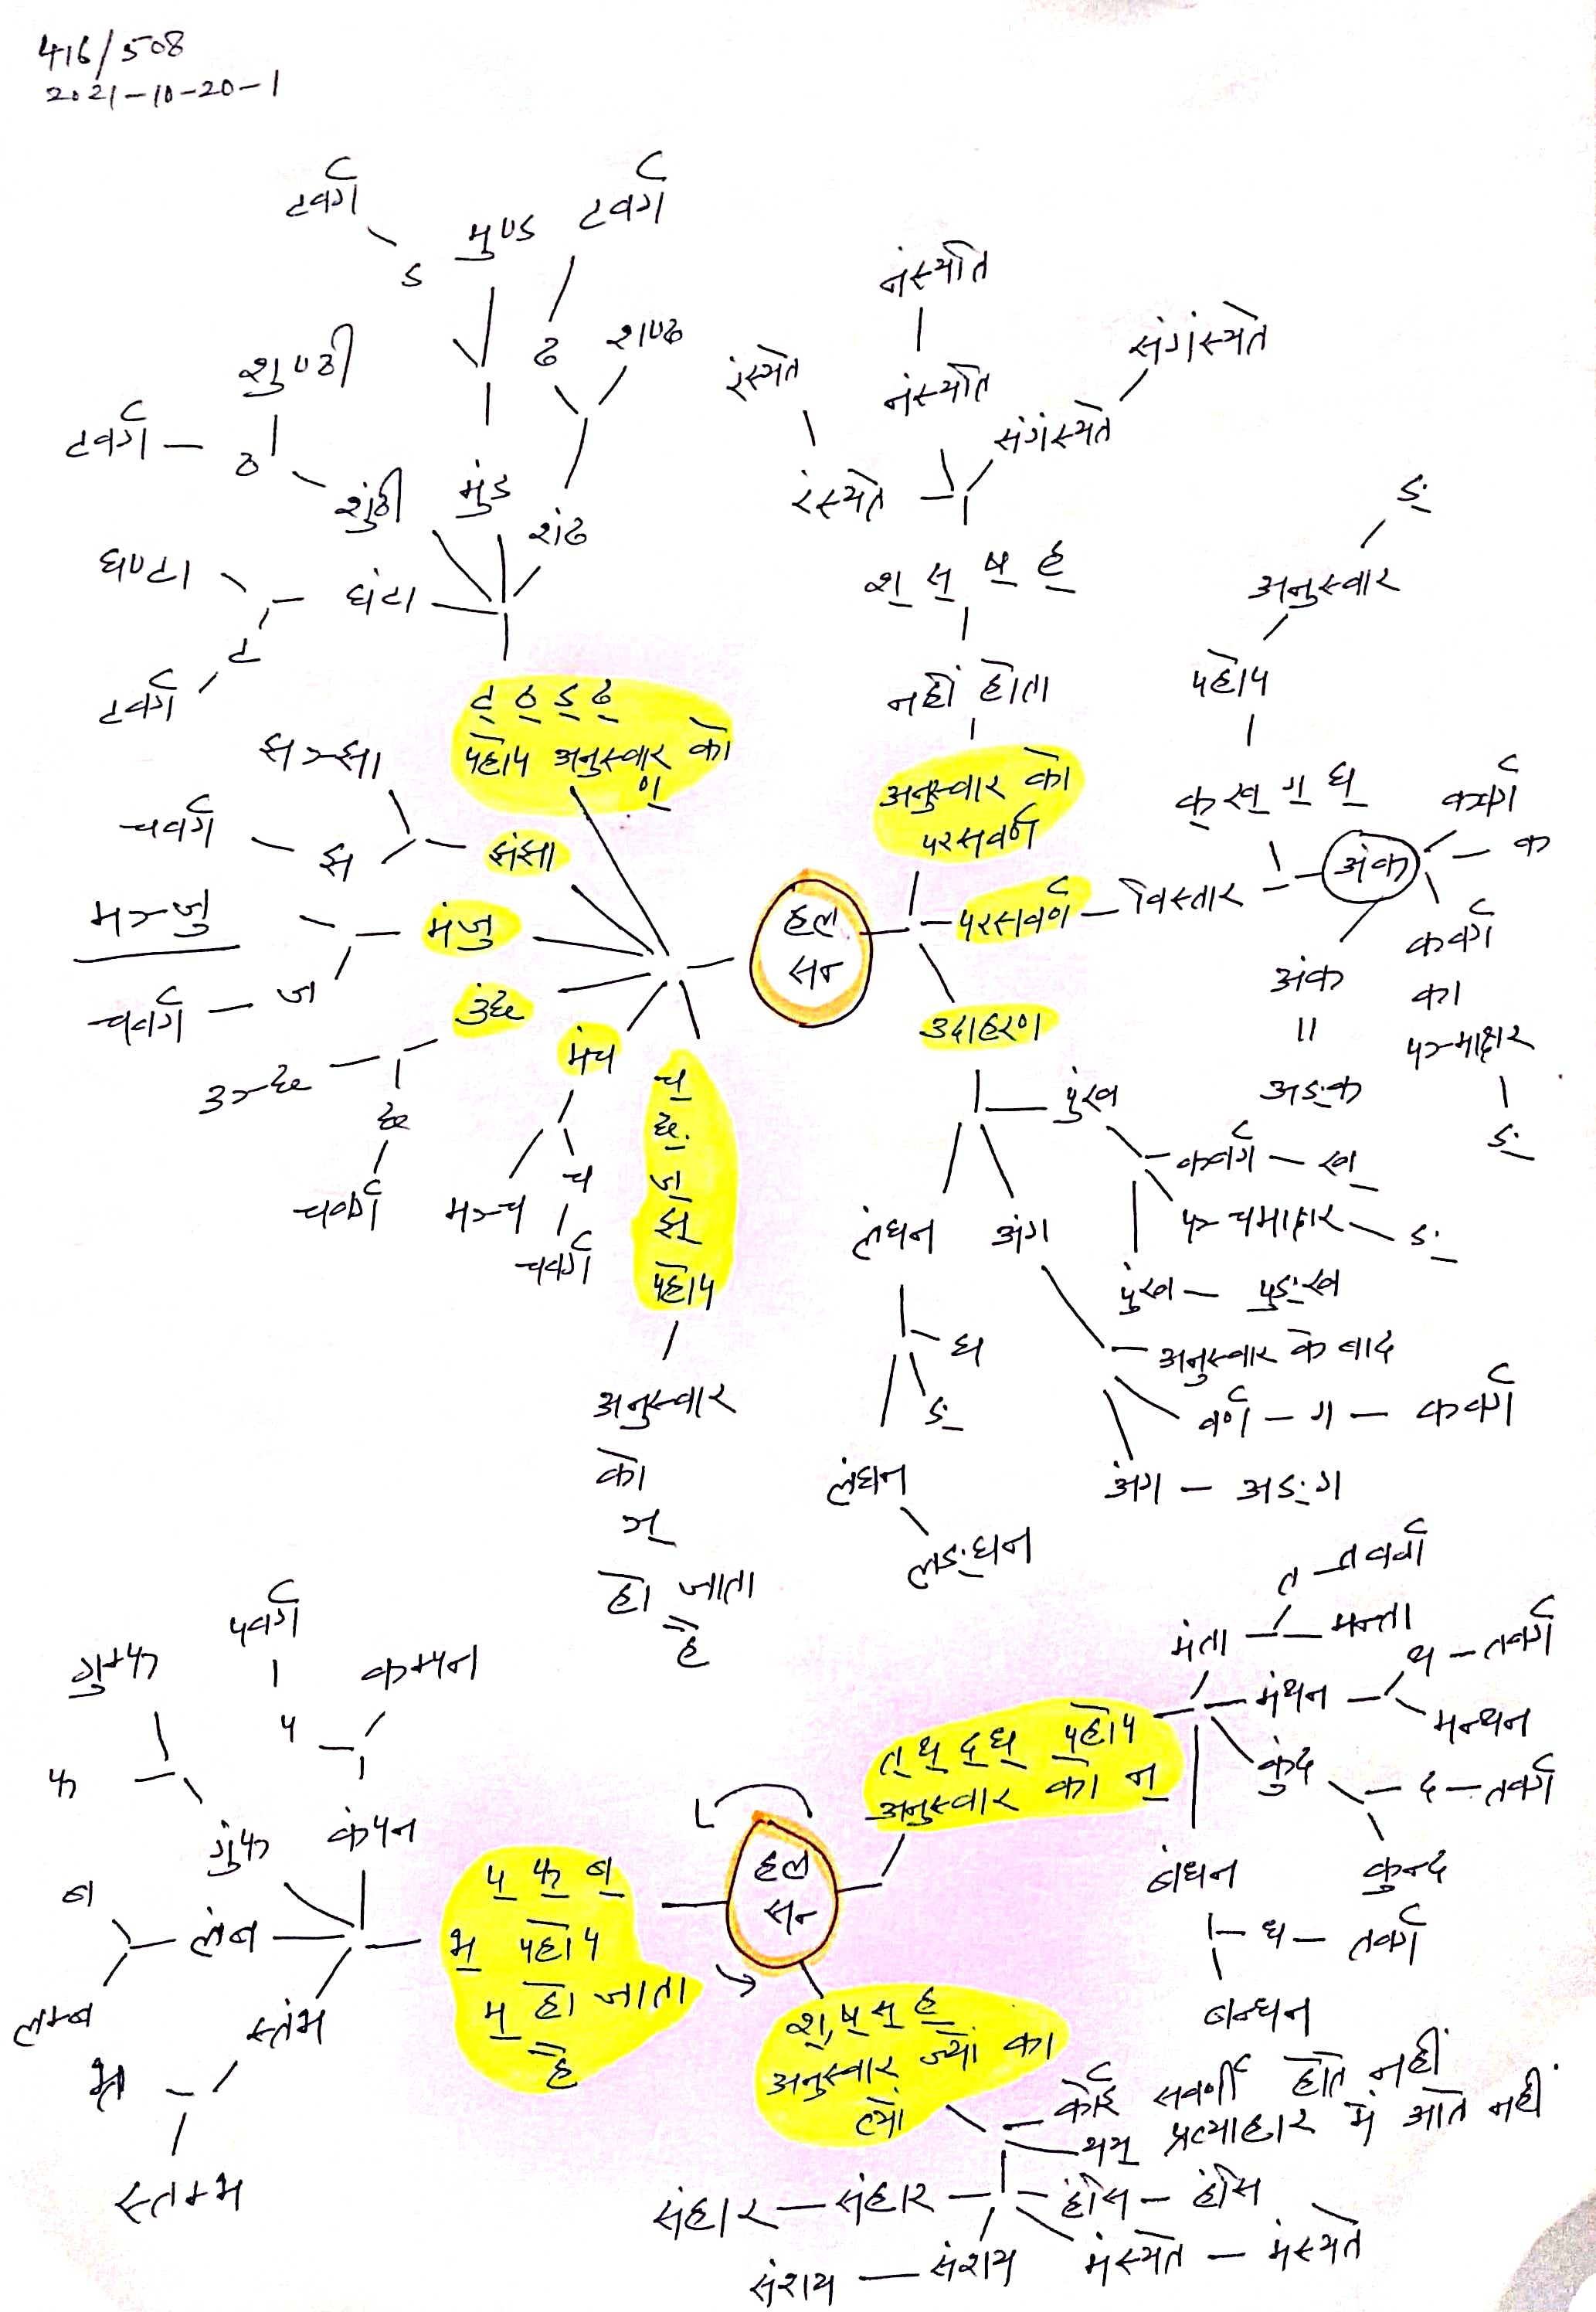 416/508
2021-10-20-1
टवर्ग
ड
मुण्ड
टवर्ग
ढ
शण्ढ
शुण्ठी
टवर्ग
ठ
शुंठी
मुंड
शंढ
घण्टा
घंटा
ट
टवर्ग
ट् ठ् ड् ढ्
पहले अनुस्वार को
ण्
चवर्ग
झ
झंझा
मञ्जु
मंजु
चवर्ग
ज
उंछ
उञ्छ
छ
चवर्ग
मंच
मञ्च
च
चवर्ग
च्
छ्
ज्
झ्
अनुस्वार
को
ञ्
हो जाता
है
नंस्यति
नंस्यति
रंस्यते
रंस्यते
संगंस्यते
संगंस्यते
श् स् ष् ह्
नहीं होता
अनुस्वार को
परसवर्ण
हल
सन्
परसवर्ण
विस्तार
उदाहरण
ङ्
अनुस्वार
क् ख् ग् घ्
अंक
कवर्ग
क
कवर्ग
का
ङ्
अंक
॥
अङ्क
पुंख
कवर्ग – ख्
ङ्
पुंख – पुङ्ख
लंघन
अंग
घ
ङ्
लंघन
लङ्घन
अनुस्वार के बाद
वर्ण – ग – कवर्ग
अंग – अङ्ग
त – तवर्ग
मंता
मन्ता
मंथन
थ – तवर्ग
मन्थन
कुंद
द – तवर्ग
कुन्द
बंधन
ध – तवर्ग
बन्धन
त् थ् द् ध्
अनुस्वार का न्
हल
सन्
प् फ् ब्
भ्
म् हो जाता
है
पवर्ग
प
कम्पन
कंपन
गुम्फ
फ
गुंफ
ब
लंब
लम्ब
स्तंभ
भ
स्तम्भ
श्, ष् स् ह्
अनुस्वार ज्यों का
त्यों
कोई सवर्णी होते नहीं
यय् प्रत्याहार में आते नहीं
संहार – संहार
संशय – संशय
मंस्यते – मंस्यते